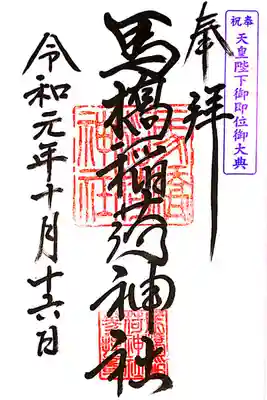 奉祝
天皇陛下御即位御大典
奉拝
馬橋稲荷神社
令和元年十月十六日